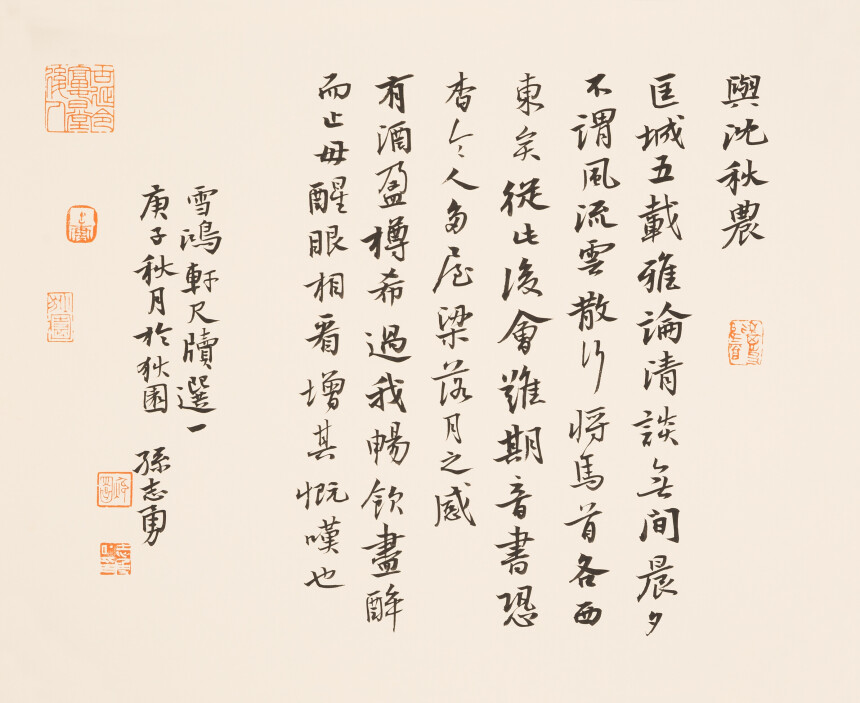 與沈秋農
匡城五載雅論清談無間晨夕
不謂風流雲散行將馬首各西
東矣從此後會難期音書恐
杳令人多屋梁落月之感
有酒盈樽希過我暢飲盡醉
而止毋醒眼相看增其慨嘆也
雪鴻軒尺牘選一
庚子秋月於狄園 孫志勇